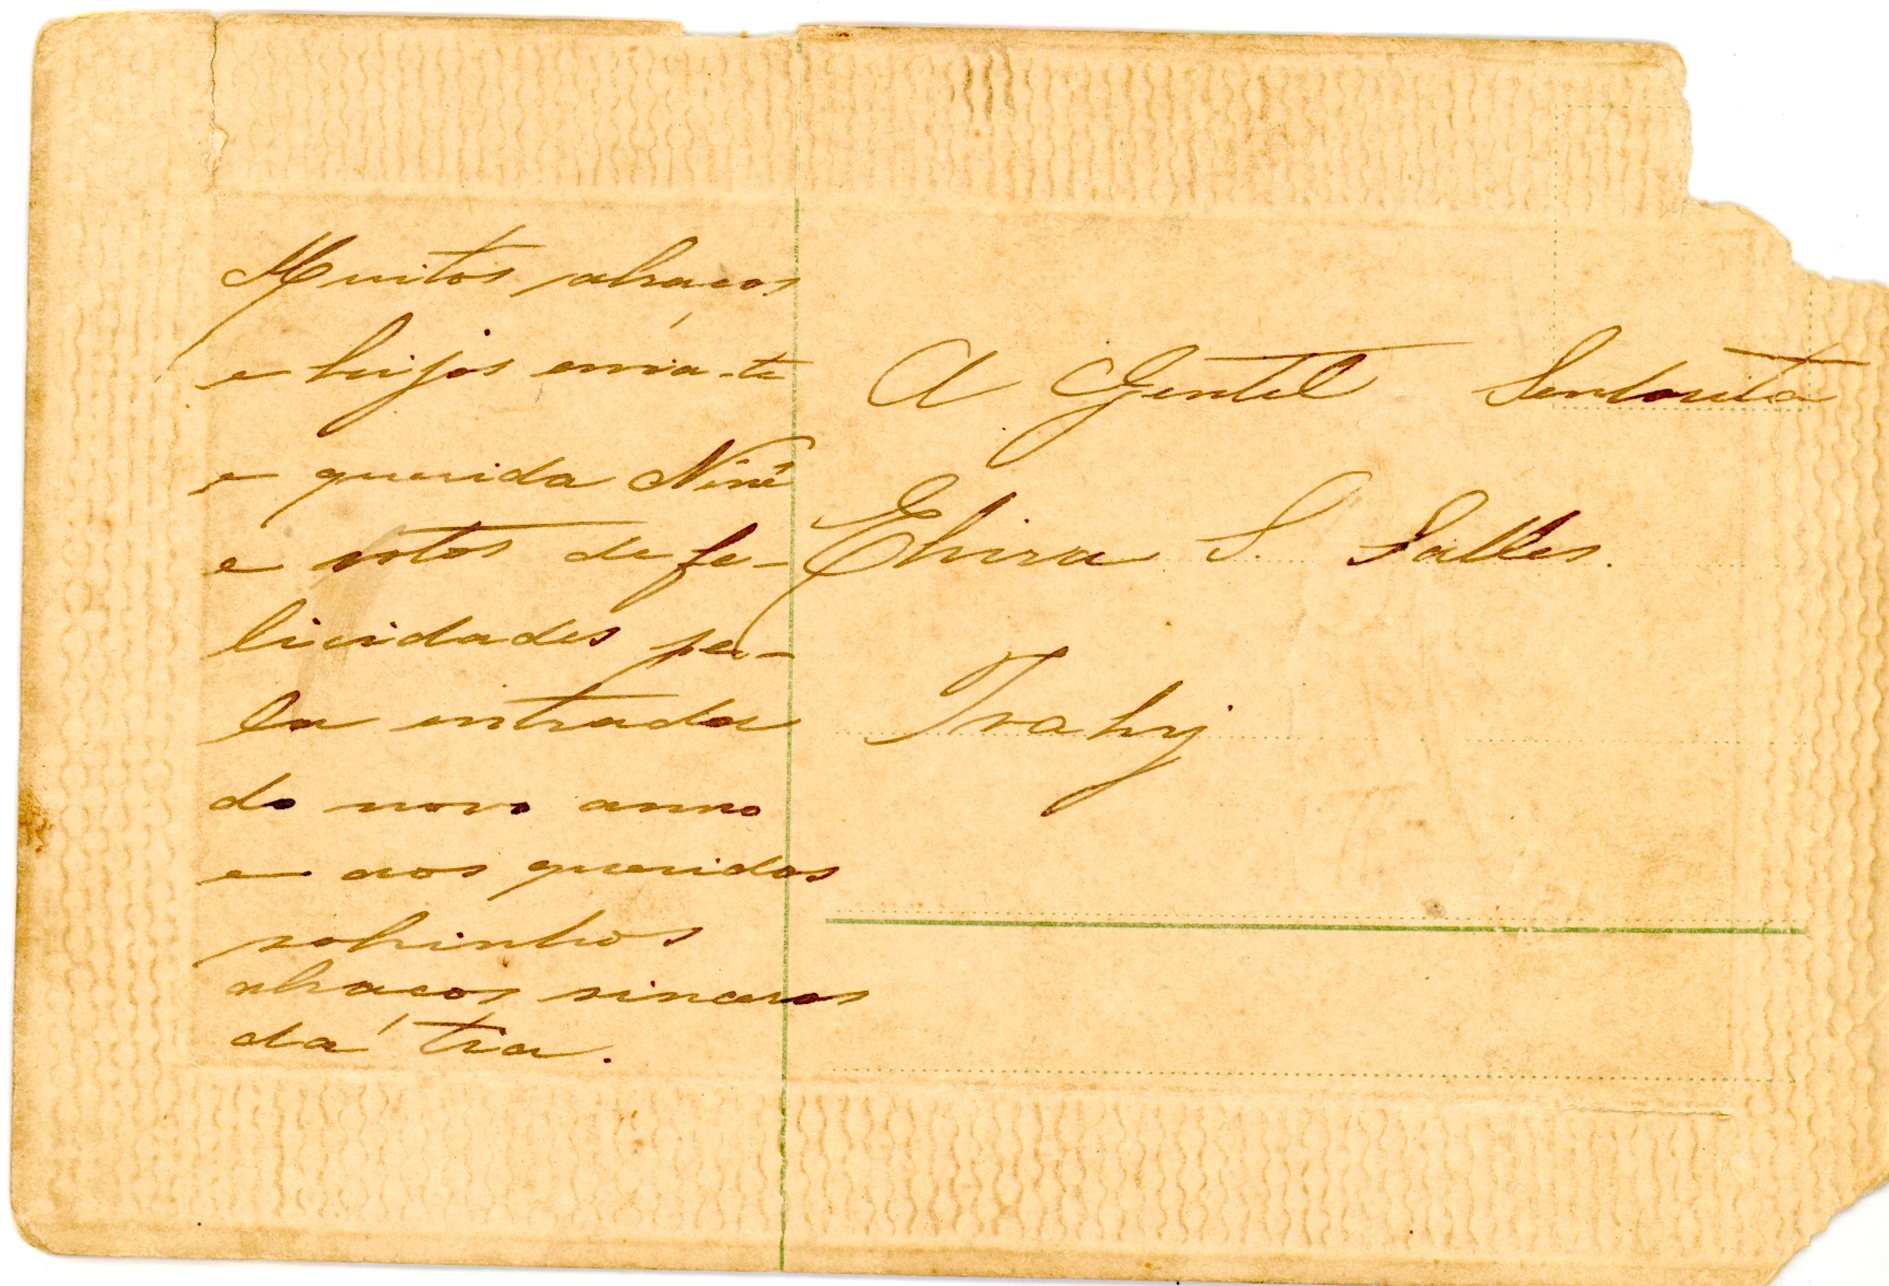 Muitos abraços
e beijos envia-te
a querida Ninê
e votos de fe-
licidades pe-
la entrada
do novo anno
e aos queridos
sobinhos
abraços sinceros
da tia.
A Gentil Senhorita
Elvira S. Salles.
Ivahy